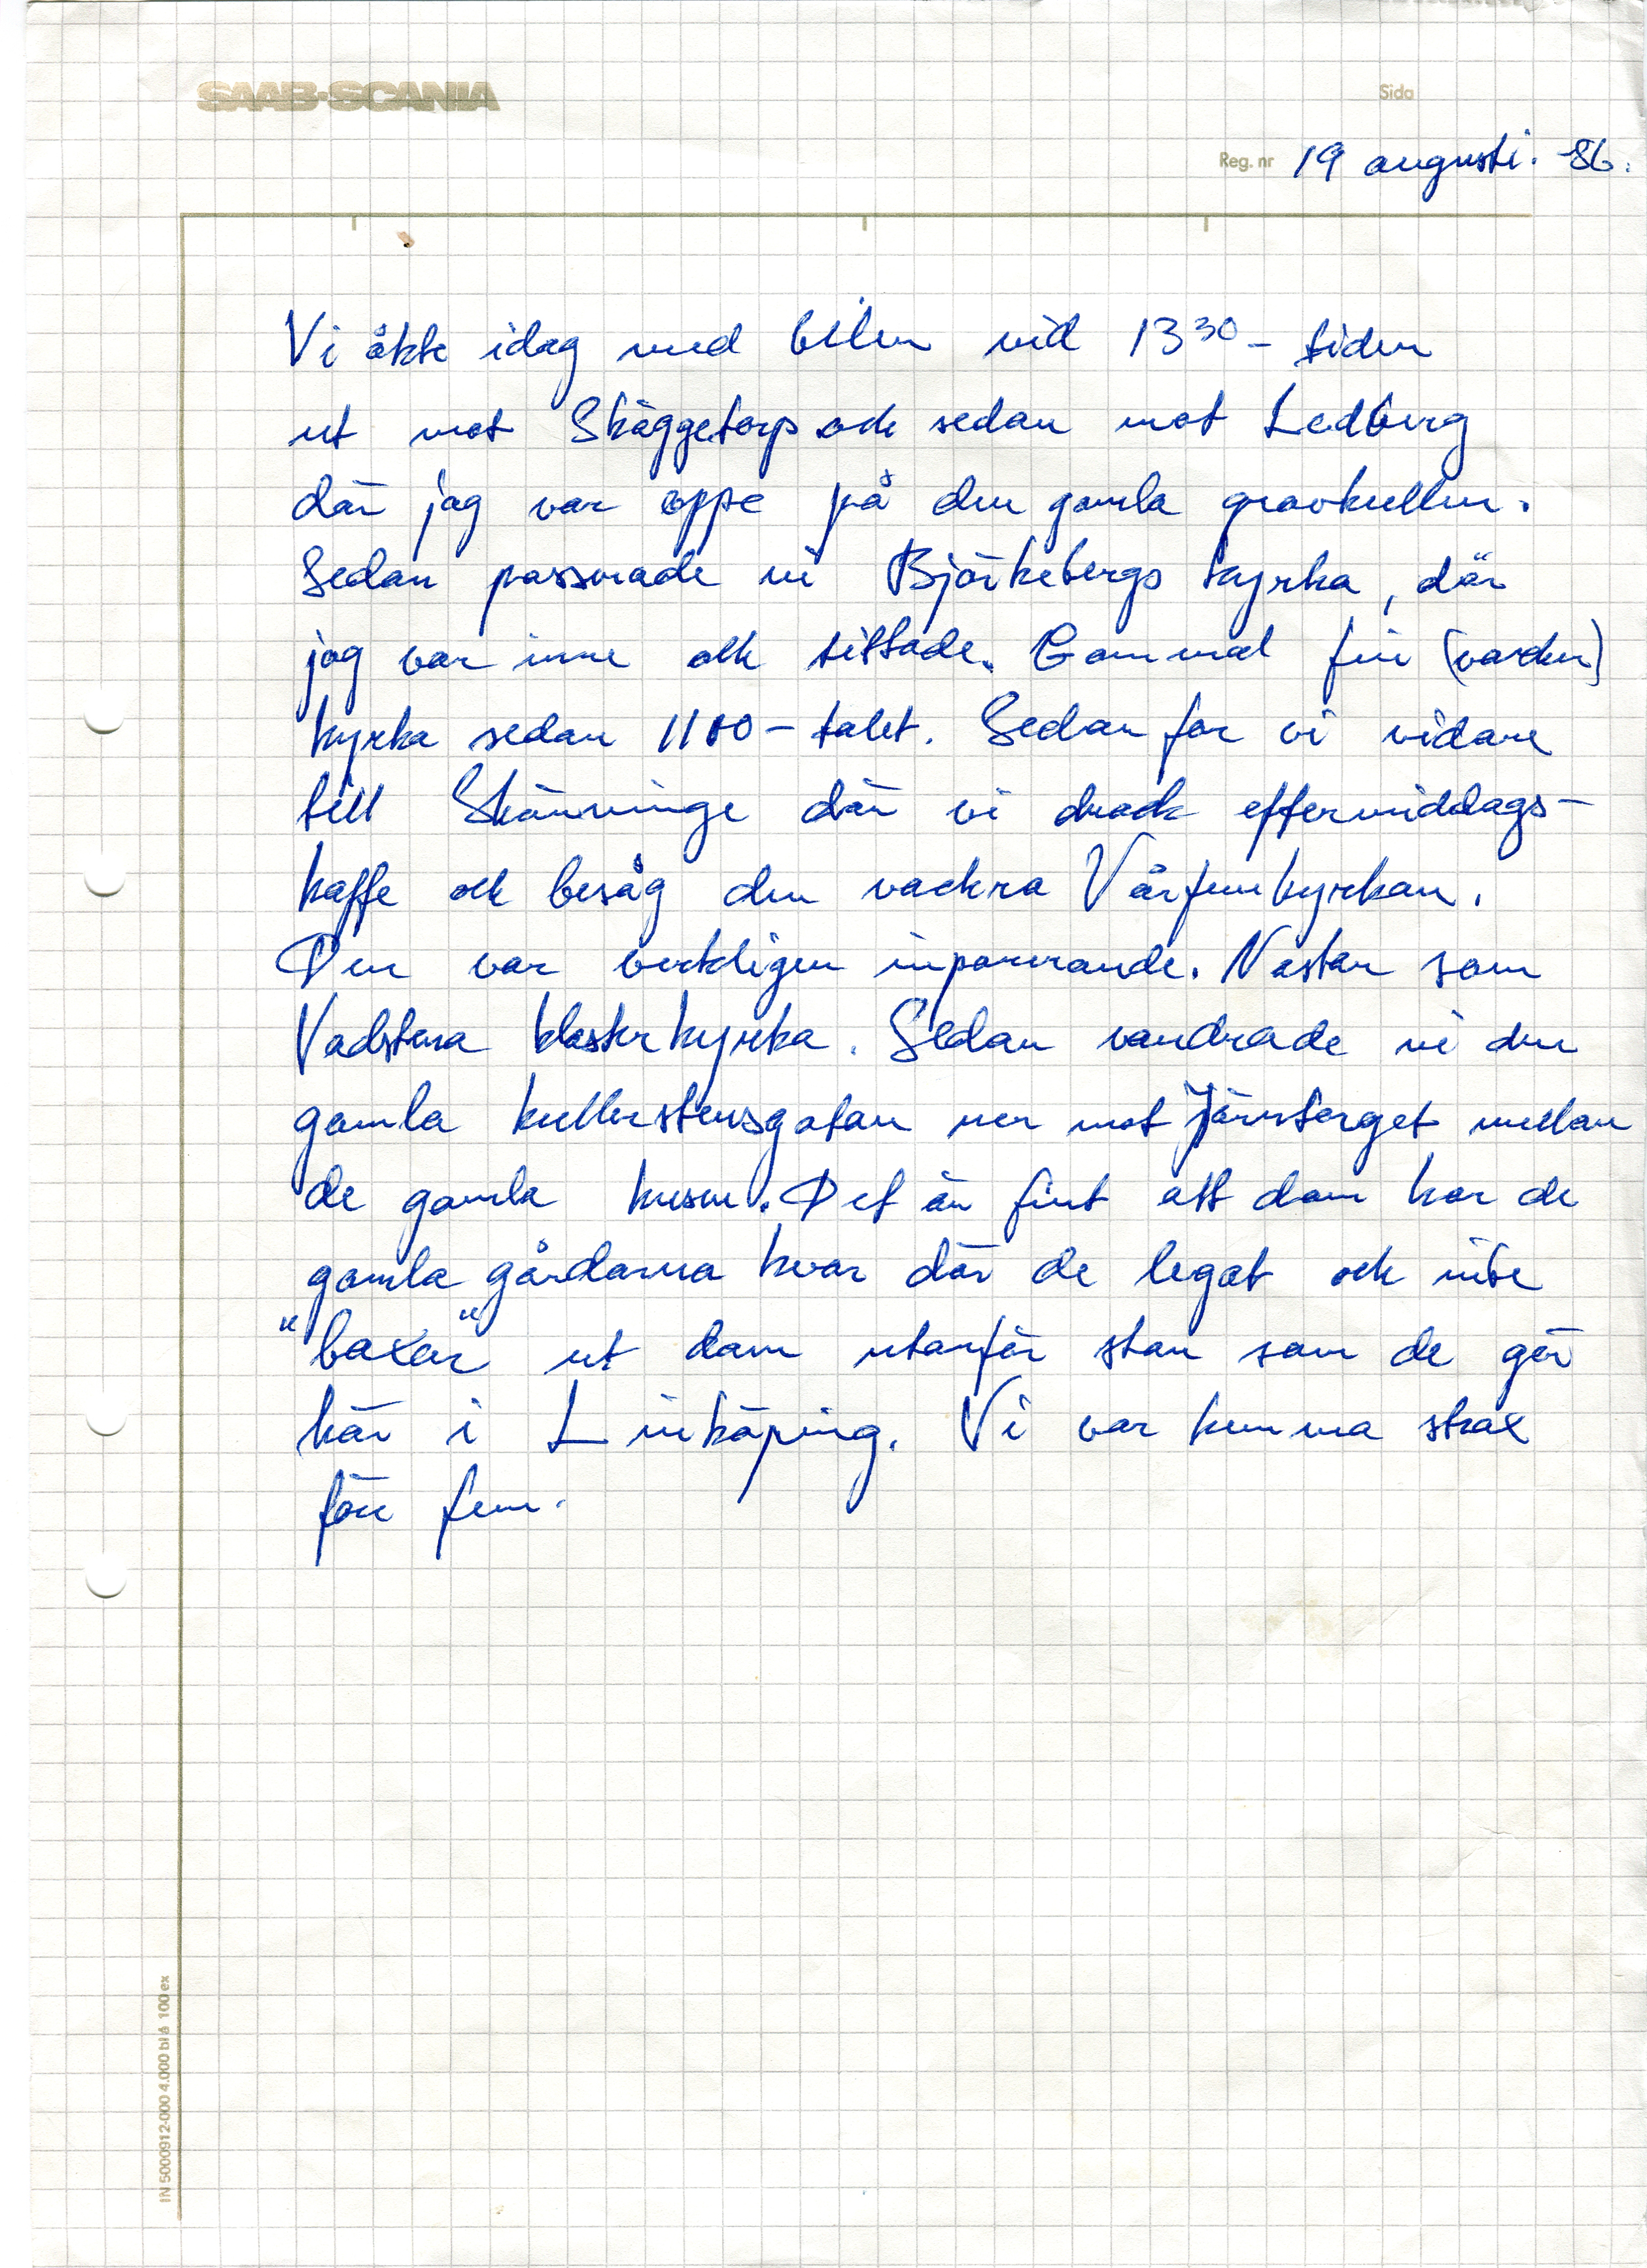 SAAB-SCANIA
Sida
Reg. nr 19 augusti. -86.
Vi åkte idag med bilen vid 13 30 - tiden
ut mot Skäggetorp och sedan mot Ledberg
där jag var oppe på den gamla gravkullen.
Sedan passerade vi Björkebergs kyrka, där
jag var inne och tittade. Gammal fin (vacker)
kyrka sedan 1100-talet. Sedan for vi vidare
till Skänninge där vi drack eftermiddags-
kaffe och besåg den vackra Vårfrukyrkan.
Den var verkligen imponerande. Nästan som
Vadstena klosterkyrka. Sedan vandrade vi den
gamla kullerstensgatan ner mot Järntorget mellan
de gamla husen. Det är fint att dom har de
gamla gårdarna kvar där de legat och inte
"baxar" ut dom utanför stan som de gör
här i Linköping. Vi var hemma strax
före fem.
IN 5000912-000 4.000 bl å 100 ex